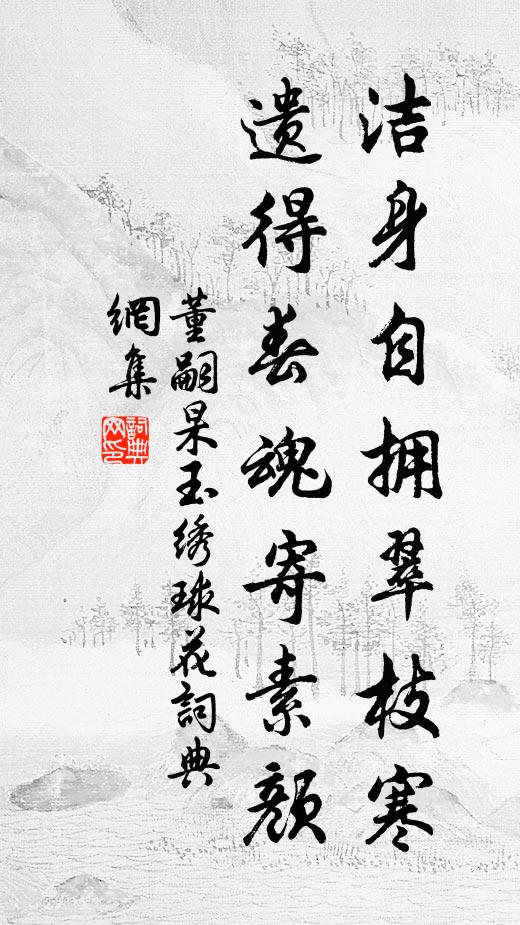 洁身自拥翠枝寒
遗得春魂寄素颜
董嗣杲玉绣球花詞典
網集
詞典
网印